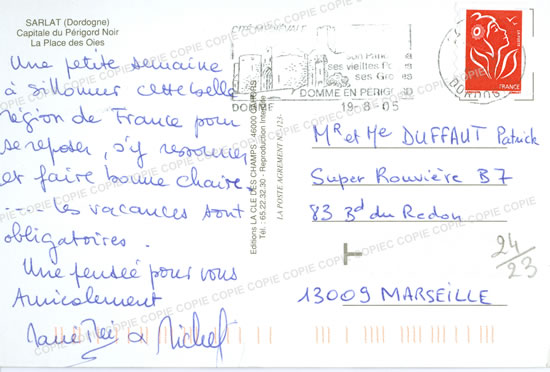 SARLAT (Dordogne)
Capitale du Périgord Noir
La Place des Oies
Une petite semaine
à sillonner cette belle
région de France pour
se reposer, s'y ressourcer
et faire bonne chaire.
.... les vacances sont
obligatoires.
Une pensée pour vous
Amicalement
& Michel
Editions LA CLE DES CHAMPS - 46000 CAHORS
Tél. 65.22.32.30 - Reproduction interdite
LA POSTE AGREMENT N°
ses vieilles
ses Gro
DOMME EN PERIGORD
19-8-05
FRANCE
Mr et Me DUFFAUT Patrick
Super Rouvière B7
83 Bd du Redon
24/23
13009 MARSEILLE
COPIE COPIE COPIE COPIE